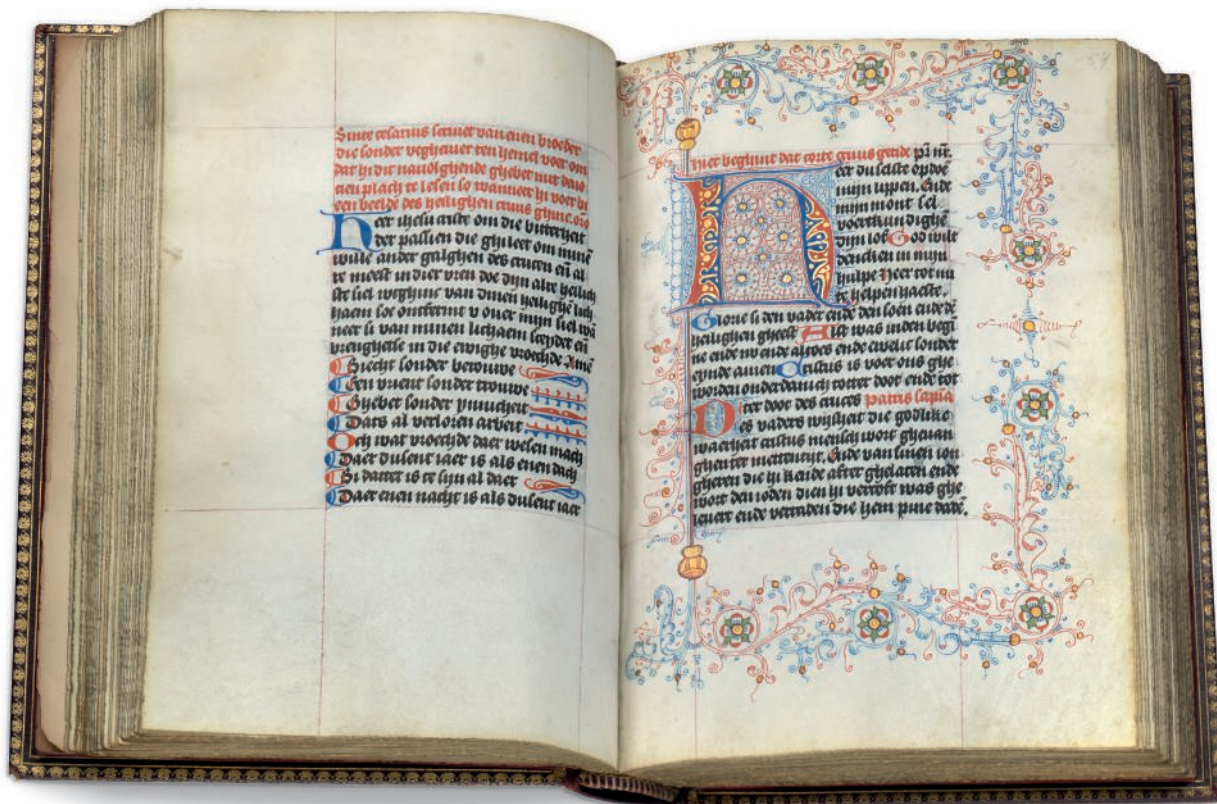 Sinte cesarius scrivet van enen brueder
die sonder veghevier ten hemel voer om
dat hi die navolghende ghebet mit devo
cien plach te lesen so wanneer hi voer bi
een beelde des heilighen cruus ghinc. oro
Heer ihesu criste om die bitterheit
der passien die ghi leet om minen
wille ander galghen des crucen en̄ al
re meest in dier vren doe dijn alre heilich
ste siel wtghinc van dinen heilighē lich
haem soe ontfermt v over mijn siel wā
neer si van minen lichaem sceydet en̄
brenghetse in die ewighe vroechde Amē
Biecht sonder berouwe
Een vrient sonder trouwe
Ghebet sonder ynnicheit
Dats al verloren arbeit
Och wat vroechde daer wesen mach
Daer dusent iaer is als enen dach
Bi dattet is te sijn al daer
Daer enen nacht is als dusent iaer
59
Hier beghint dat corte cruus getide pr̄ nr̄.
Heer du selste opdoē
mijn lippen. Ende
mijn mont sel
voertkundighē
dijn lof God wilt
dencken in mijn
hulpe Heer tot mi
te helpen haeste.
Glorie si den vader ende den soen ende dē
heilighen gheest Alst was inden begī
ne ende nv ende altoes ende ewelic sonder
eynde amen Cristus is voer ons ghe
worden onderdanich totter doot ende tot
ter doot des cruces Patris sapīa
Des vaders wijsheit die godlike
waerheit cristus mensch wort ghevan
ghen ter mettentijt. Ende van sinen ion
gheren die hi kende after ghelaten ende
wort den ioden dien hi vercoft was ghe
levert ende verraden die hem pine dadē.